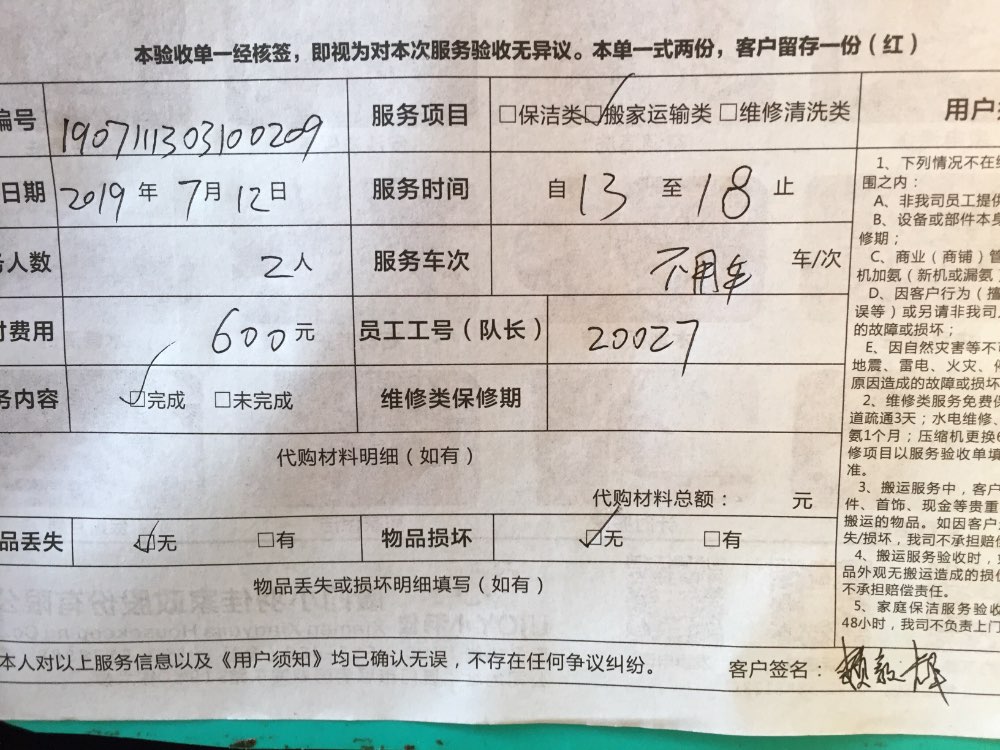 本验收单一经核签，即视为对本次服务验收无异议。本单一式两份，客户留存一份（红）
编号 1907111303100209 服务项目 □保洁类 ☑搬家运输类 □维修清洗类
日期 2019年7月12日 服务时间 自13至18止
人数 2人 服务车次 不用车 车/次
费用 600元 员工工号（队长） 20027
务内容 ☑完成 □未完成 维修类保修期
代购材料明细（如有）
代购材料总额： 元
品丢失 ☑无 □有 物品损坏 ☑无 □有
物品丢失或损坏明细填写（如有）
本人对以上服务信息以及《用户须知》均已确认无误，不存在任何争议纠纷。 客户签名：
用户
1、下列情况不在
围之内：
A、非我司员工提供
B、设备或部件本身
修期；
C、商业（商铺）管
机加氨（新机或漏氨
D、因客户行为（
误等）或另请非我司
的故障或损坏；
E、因自然灾害等不
地震、雷电、火灾、
原因造成的故障或损坏
2、维修类服务免费保
道疏通3天；水电维修、
氨1个月；压缩机更换6
修项目以服务验收单填
准。
3、搬运服务中，客户
件、首饰、现金等贵重
搬运的物品。如因客户
失/损坏，我司不承担赔偿
4、搬运服务验收时，
品外观无搬运造成的损
不承担赔偿责任。
5、家庭保洁服务验收
48小时，我司不负责上门